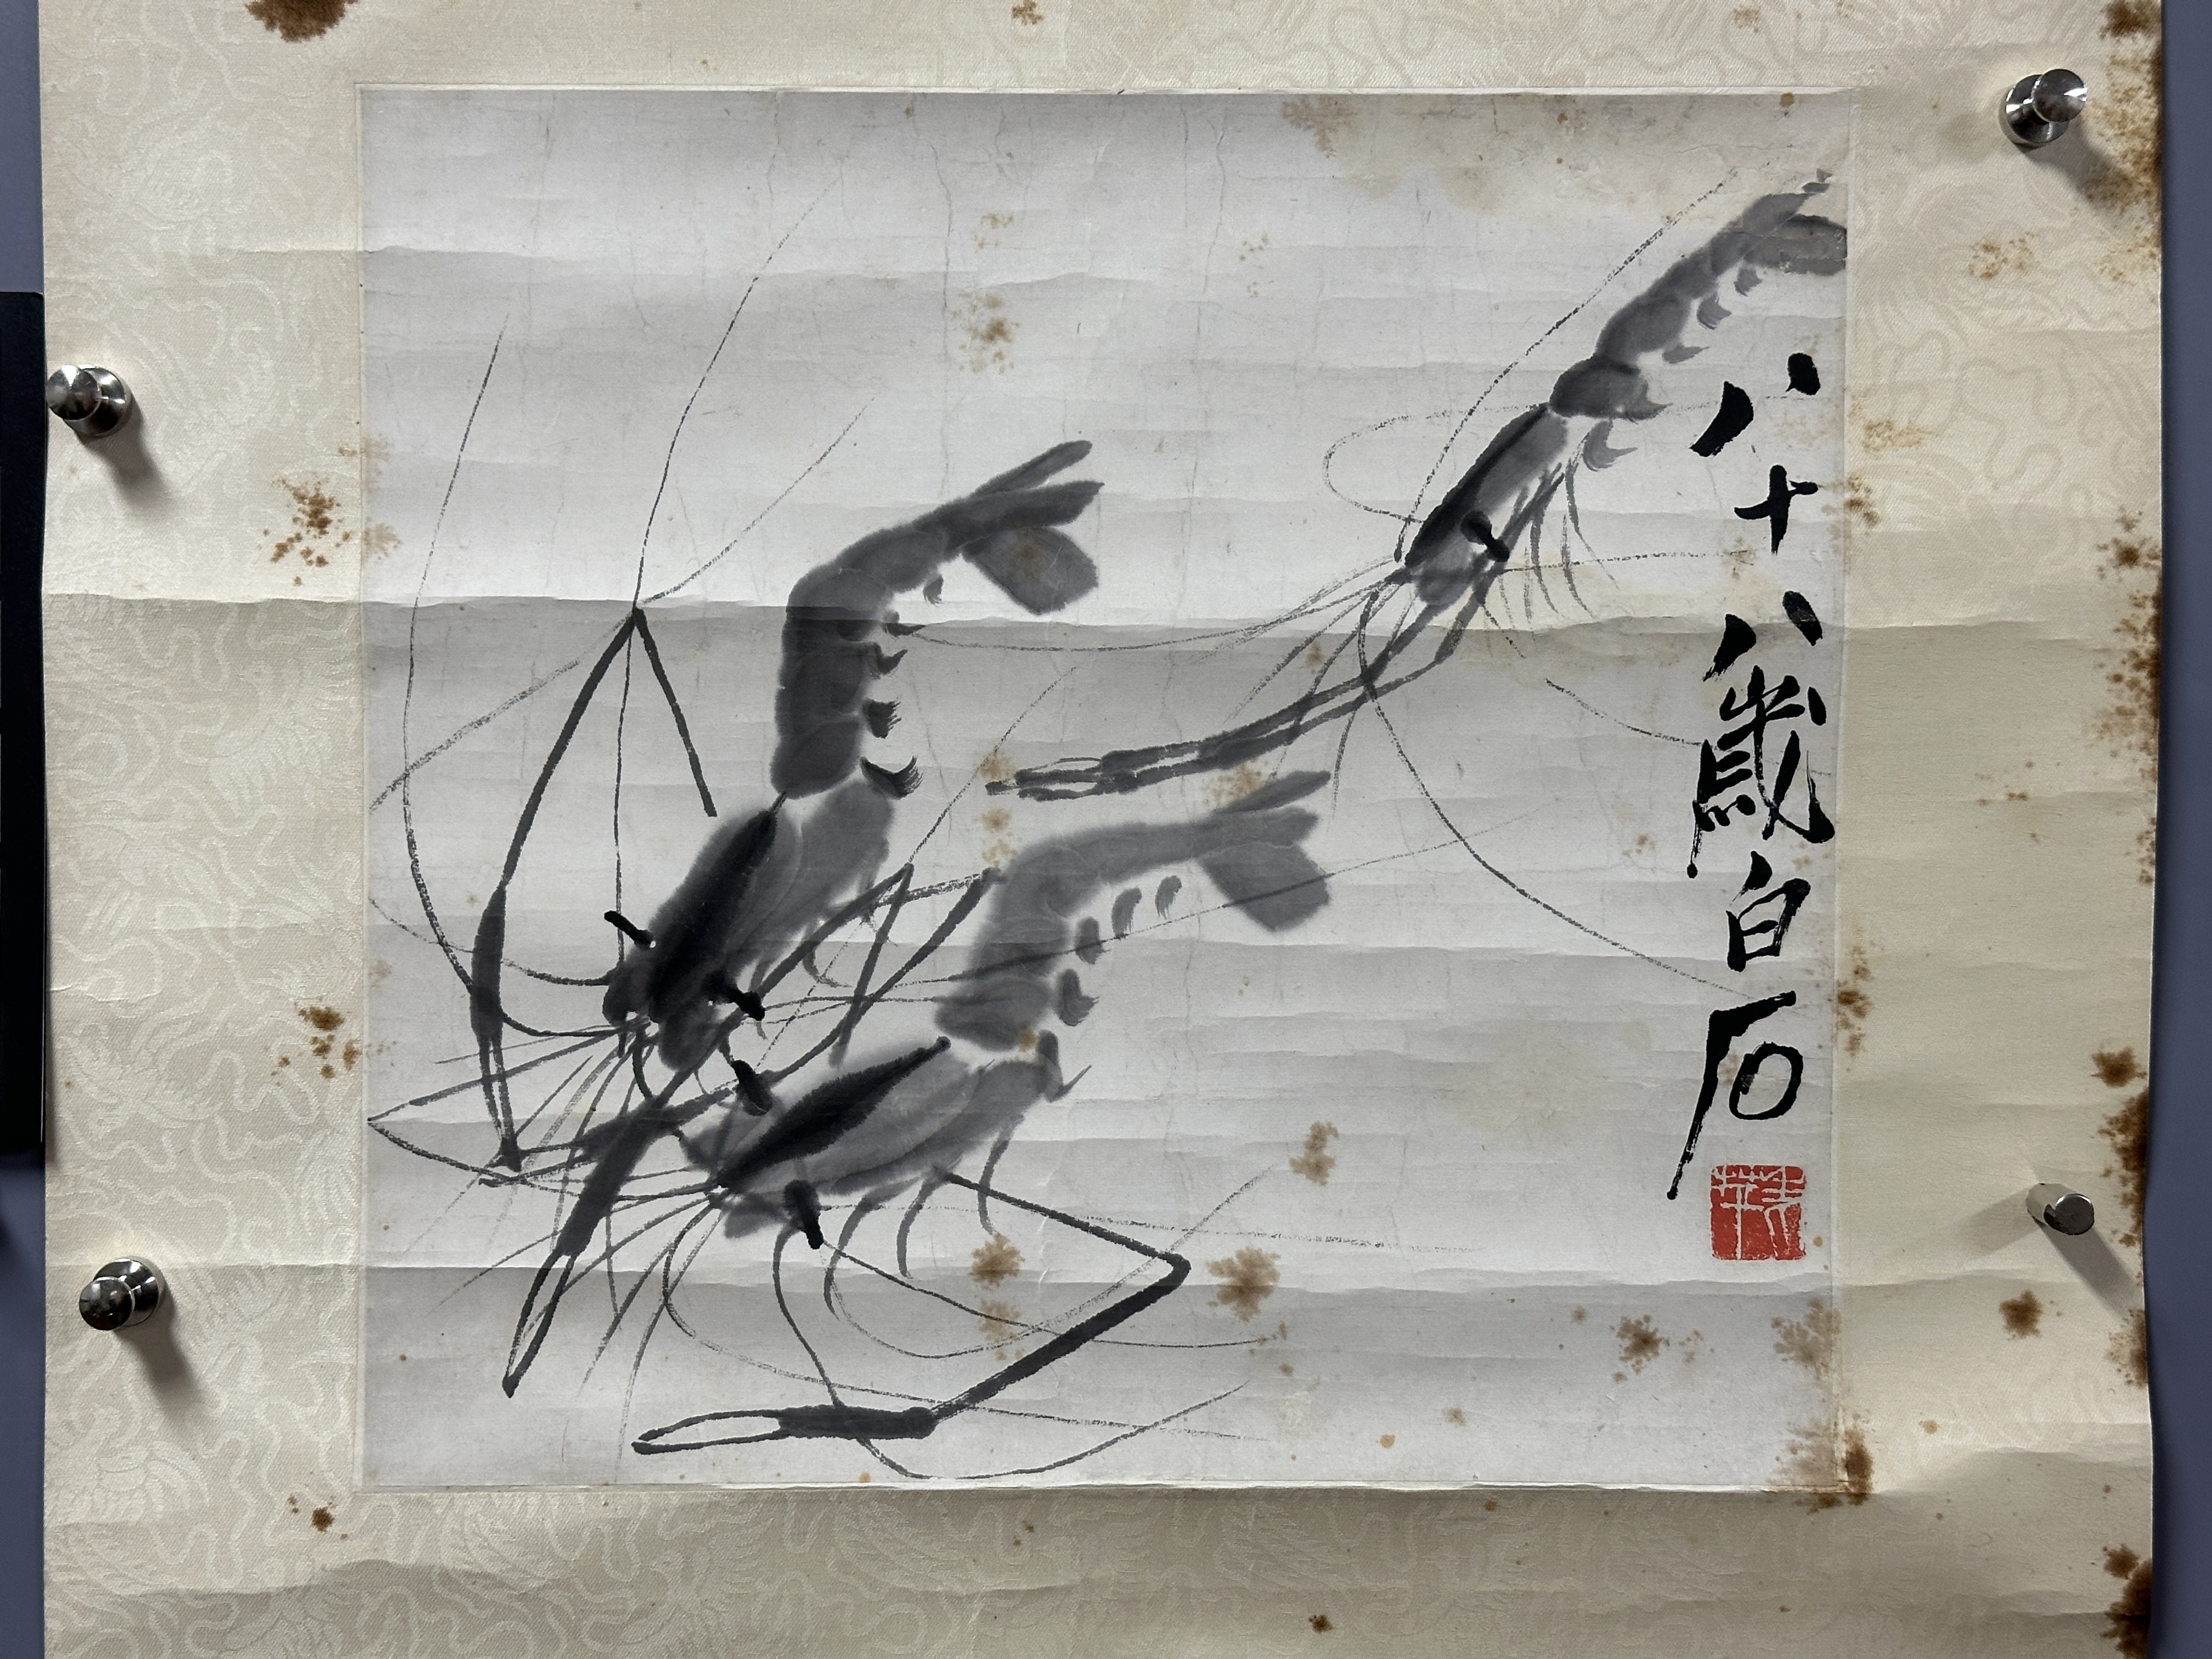 八十八歲白石